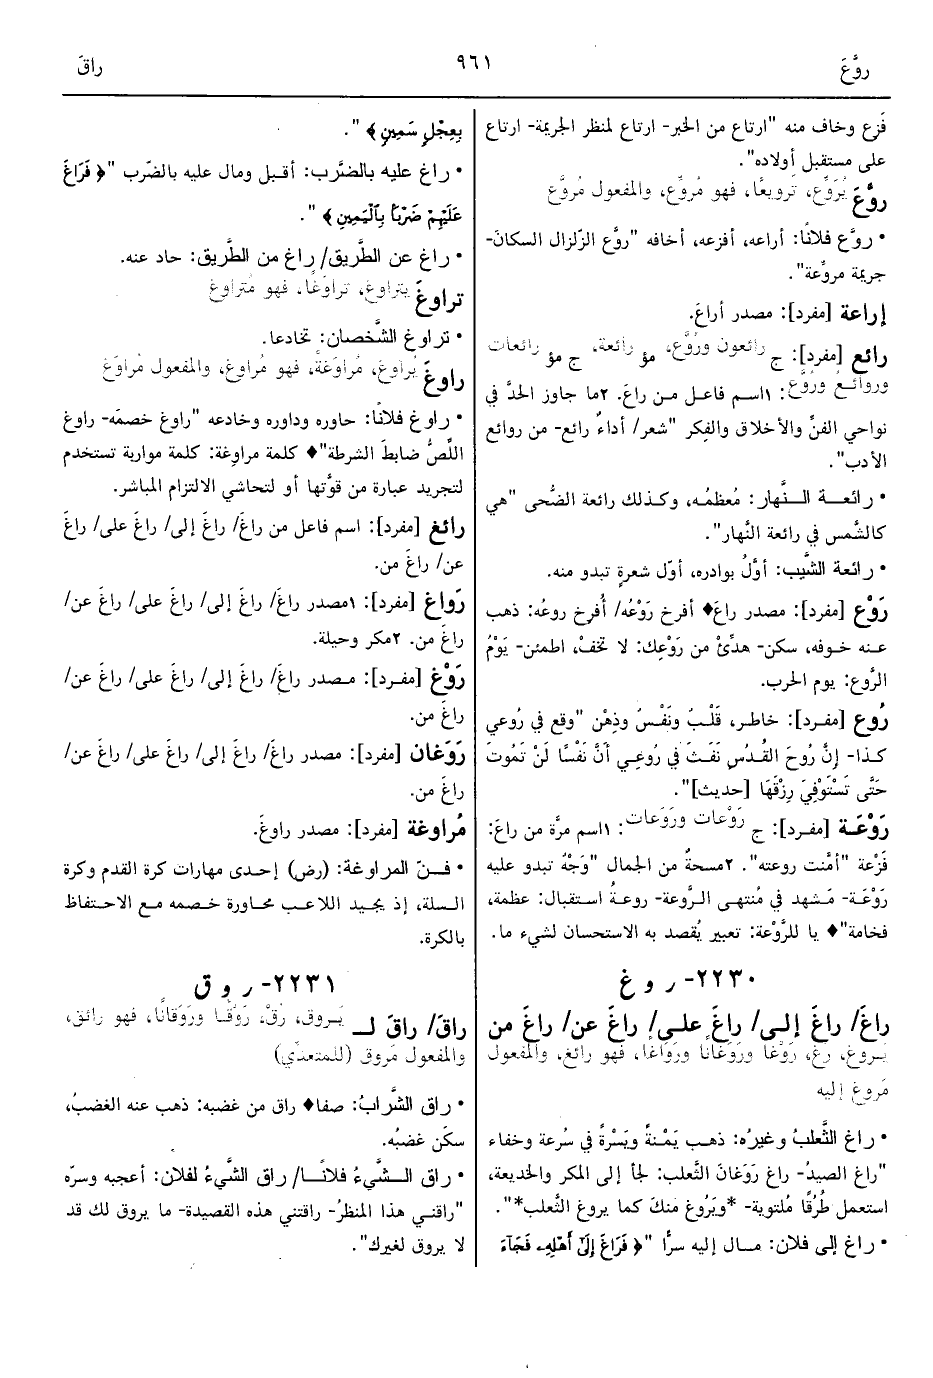 روَّعَ
٩٦١
راقَ
فَزع وخاف منه "ارتاع من الخبر- ارتاع لمنظر الجريمة- ارتاع
على مستقبل أولاده".
روَّعَ يُرَوِّع، تَرويعًا، فهو مُروِّع، والمفعول مُروَّع
• روَّع فلانًا: أراعه، أفزعه، أخافه "روَّع الزّلزال السكانَ-
جريمة مروِّعة".
إراعة [مفرد]: مصدر أراعَ.
رائع [مفرد]: ج رائعون ورُوَّع، مؤ رائعة، ج مؤ رائعات
وروائع ورُوَّع: ١اسم فاعل من راعَ. ٢ما جاوز الحدَّ في
نواحي الفنِّ والأخلاق والفكر "شعر/ أداءٌ رائع- من روائع
الأدب".
• رائعة النَّهار: مُعظمُه، وكذلك رائعة الضُّحى "هي
كالشَّمس في رائعة النَّهار".
• رائعة الشَّيب: أوَّلُ بوادره، أوّل شعرةٍ تبدو منه.
رَوْع [مفرد]: مصدر راعَ♦ أفرخ رَوْعُه/ أُفرخ روعُه: ذهب
عنه خوفه، سكن- هدِّئْ من رَوْعِك: لا تخفْ، اطمئن- يَوْمُ
الرَّوع: يوم الحرب.
رُوع [مفرد]: خاطر، قَلْبٌ ونَفْسٌ وذِهْن "وقع في رُوعي
كذا- إِنَّ رُوحَ القُدُسِ نَفَثَ فِي رُوعِي أَنَّ نَفْسًا لَنْ تَمُوتَ
حَتَّى تَسْتَوْفِيَ رِزْقَهَا [حديث]".
رَوْعَة [مفرد]: ج رَوْعات ورَوَعات: ١اسم مرَّة من راعَ:
فَزْعة "أمَّنت روعته". ٢مسحةٌ من الجمال "وَجْهٌ تبدو عليه
رَوْعَة- مَشهد في مُنتهى الرَّوعة- روعةُ استقبال: عظمة،
فخامة"♦ يا للرَّوْعة: تعبير يُقصد به الاستحسان لشيء ما.
٢٢٣٠- ر و غ
راغَ/ راغَ إلى/ راغَ على/ راغَ عن/ راغَ من
يَروغ، رُغْ، رَوْغًا ورَوَغانًا ورَواغًا، فهو رائغ، والمفعول
مَروغ إليه
• راغ الثَّعلبُ وغيرُه: ذهب يَمْنةً ويَسْرةً في سُرعة وخفاء
"راغ الصيدُ- راغ رَوَغانَ الثَّعلب: لجأ إلى المكر والخديعة،
استعمل طُرُقًا مُلتوية- *ويَرُوغ منكَ كما يروغ الثَّعلب*".
• راغ إلى فلان: مال إليه سرًّا "﴿ فَرَاغَ إِلَىٰٓ أَهْلِهِۦ فَجَآءَ
بِعِجْلٍ سَمِينٍ ﴾ ".
• راغ عليه بالضَّرب: أقبل ومال عليه بالضّرب "﴿ فَرَاغَ
عَلَيْهِمْ ضَرْبًا بِٱلْيَمِينِ ﴾ ".
• راغ عن الطَّريق/ راغ من الطَّريق: حاد عنه.
تراوغَ يتراوغ، تراوُغًا، فهو مُتراوغ
• تراوغ الشَّخصان: تخادعا.
راوغَ يُراوغ، مُراوَغةً، فهو مُراوِغ، والمفعول مُراوَغ
• راوغ فلانًا: حاوره وداوره وخادعه "راوغ خصمَه- راوغ
اللِّصُّ ضابطَ الشرطة"♦ كلمة مراوِغة: كلمة مواربة تستخدم
لتجريد عبارة من قوَّتها أو لتحاشي الالتزام المباشر.
رائغ [مفرد]: اسم فاعل من راغَ/ راغَ إلى/ راغَ على/ راغَ
عن/ راغَ من.
رَواغ [مفرد]: ١مصدر راغَ/ راغَ إلى/ راغَ على/ راغَ عن/
راغَ من. ٢مكر وحيلة.
رَوْغ [مفرد]: مصدر راغَ/ راغَ إلى/ راغَ على/ راغَ عن/
راغَ من.
رَوَغان [مفرد]: مصدر راغَ/ راغَ إلى/ راغَ على/ راغَ عن/
راغَ من.
مُراوغة [مفرد]: مصدر راوغَ.
• فنّ المراوغة: (رض) إحدى مهارات كرة القدم وكرة
السلة، إذ يجيد اللاعب محاورة خصمه مع الاحتفاظ
بالكرة.
٢٢٣١- ر و ق
راقَ/ راقَ لـ يَروق، رُقْ، رَوْقًا ورَوَقانًا، فهو رائق،
والمفعول مَروق (للمتعدِّي)
• راق الشَّرابُ: صفا♦ راق من غضبه: ذهب عنه الغضبُ،
سكَن غضبُه.
• راق الشَّيءُ فلانًا/ راق الشَّيءُ لفلان: أعجبه وسرّه
"راقني هذا المنظرُ- راقتني هذه القصيدة- ما يروق لك قد
لا يروق لغيرك".